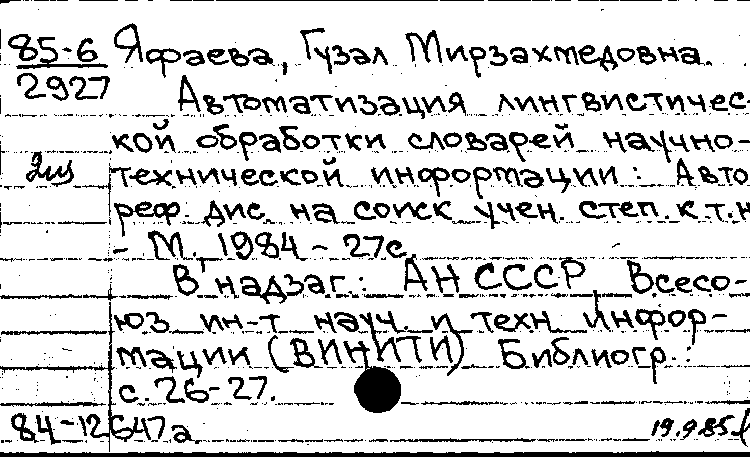 85-6 Яфаева, Гузал Мирзахмедовна.
2927
Автоматизация лингвистичес-
кой обработки словарей научно-
технической информации: Авто
реф. дис. на соиск учен. степ. к.т.н
- М., 1984 - 27с.
В надзаг.: АН СССР, Всесо-
юз ин-т науч. и техн. инфор-
мации (ВИНИТИ) Библиогр.:
с. 26-27.
84-12647а
19.9.85